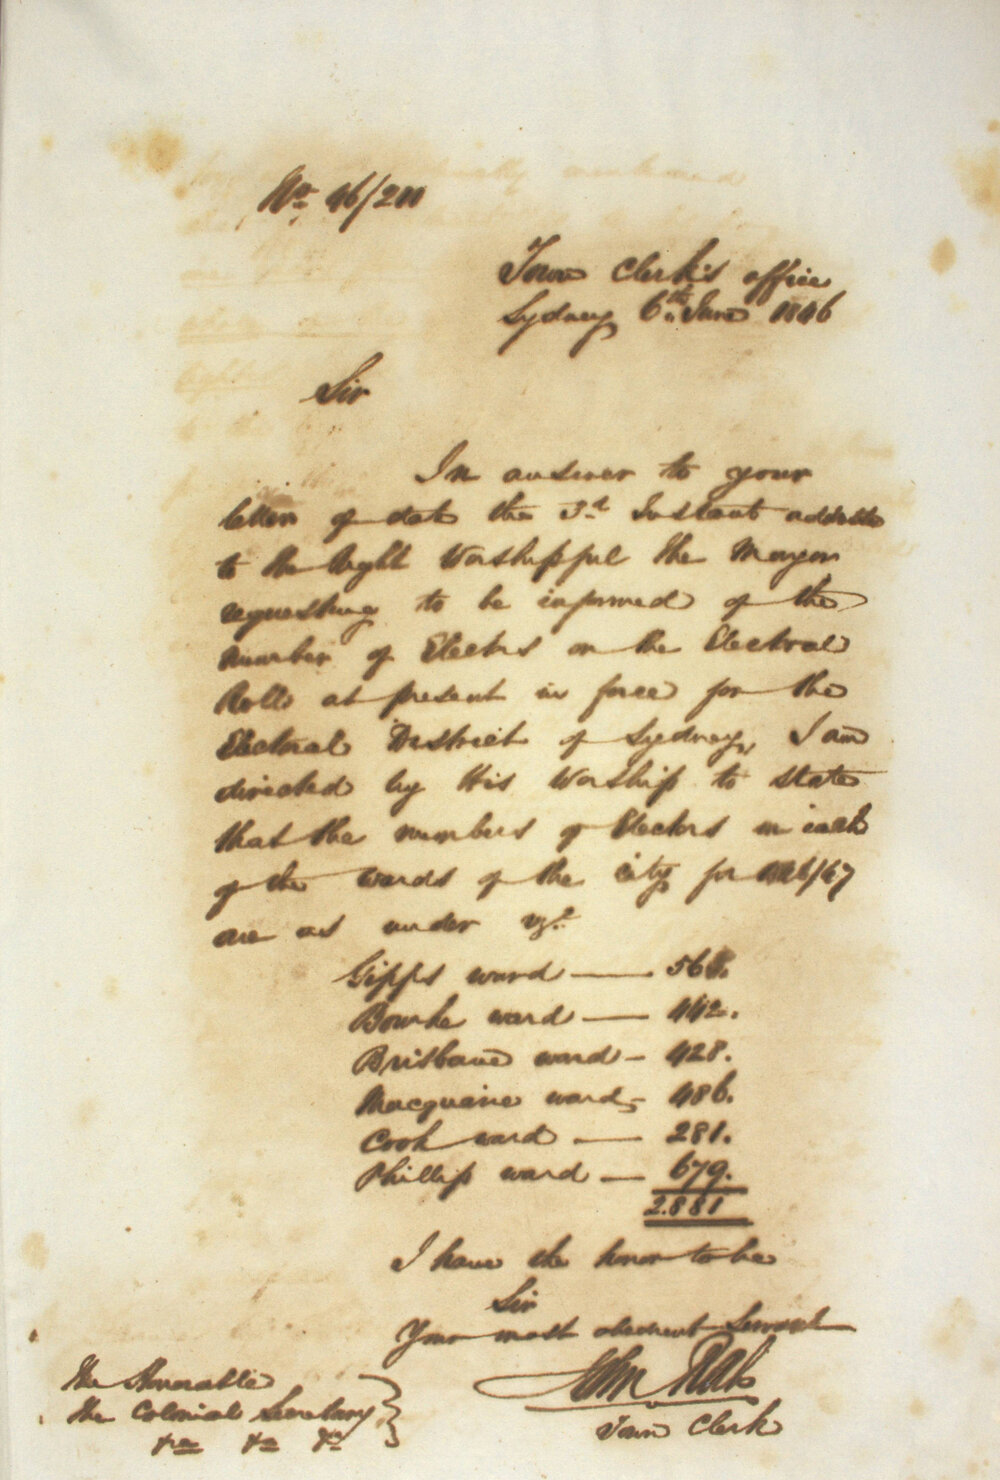 No. 46/211
Town Clerk's office
Sydney 6th June 1846
Sir
In answer to your
letter of date the 3rd Instant
to the Right Worshipful the Mayor
requesting to be informed of the
number of Electors on the Electoral
Rolls at present in force for the
Electoral District of Sydney, I am
directed by His Worship to state
that the numbers of Electors in each
of the wards of the city for 1846/47
are as under vizt
Gipps ward — 565.
Bourke ward — 442.
Brisbane ward - 428.
Macquarie ward - 486.
Cook ward — 281.
Phillip ward — 679.
2.881
I have the honor to be
Sir
Your most obedient Servant
John Rae
Town Clerk
The Honorable
the Colonial Secretary
&c &c &c